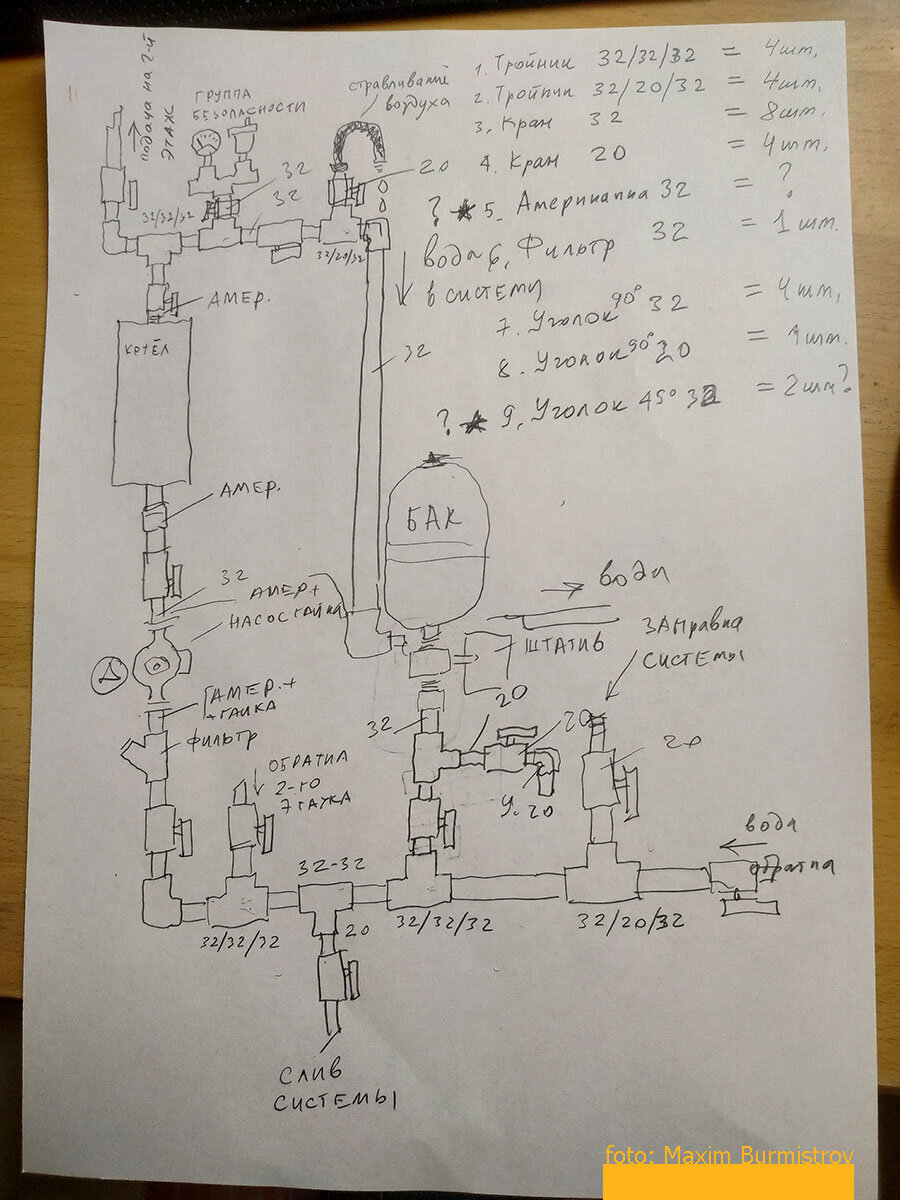 подача на 2-й
этаж
ГРУППА
БЕЗОПАСНОСТИ
стравливание
воздуха
1. Тройник 32/32/32 = 4шт.
2. Тройник 32/20/32 = 4шт.
3. Кран 32 = 8шт.
4. Кран 20 = 4шт.
? ★ 5. Американка 32 = ?
6. Фильтр 32 = 1шт.
7. Уголок 90° 32 = 4шт.
8. Уголок 90° 20 = 1шт.
? ★ 9. Уголок 45° 32 = 2шт?
32
32
20
32/32/32
32/20/32
вода
в систему
АМЕР.
КОТЁЛ
32
АМЕР.
БАК
32
АМЕР+
НАСОС ГАЙКА
вода
ШТАТИВ
ЗАПРАВКА
СИСТЕМЫ
АМЕР.+
+ГАЙКА
ФИЛЬТР
32
20
20
20
У.20
ОБРАТКА
2-го
ЭТАЖА
вода
обратка
32-32
20
32/32/32
32/32/32
32/20/32
СЛИВ
СИСТЕМЫ
foto: Maxim Burmistrov